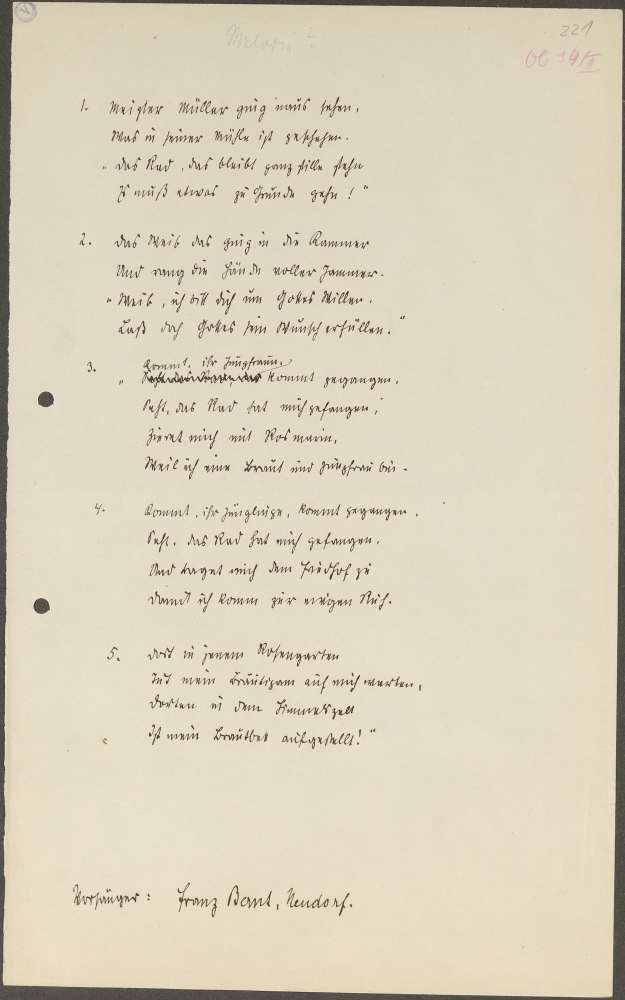 Melodie?
221
1. Meister Müller ging 'naus sehen,
Was in seiner Mühle ist geschehen.
„Das Rad, das bleibt ganz stille stehn
Es muß etwas zu Grunde gehn!"
2. Das Weib das ging in die Kammer
Und rang die Hände voller Jammer.
„Weib, ich bitt dich um Gottes Willen,
Laß doch Gottes sein Wunsch erfüllen."
3. Kommt, ihr Jungfraun,
„ kommt gegangen,
Seht, das Rad hat mich gefangen,
Zieret mich mit Rosmarin,
Weil ich eine Braut und Jungfrau bin.
4. Kommt, ihr Jünglinge, kommt gegangen,
Seht, das Rad hat mich gefangen,
Und traget mich dem Friedhof zu
Damit ich komm zur ewigen Ruh.
5. Dort in jenem Rosengarten
Tut mein Bräutigam auf mich warten,
Dorten in dem Himmelszelt
„ Ist mein Brautbet aufgestellt!"
Vorsänger: Franz Bant, Neudorf.